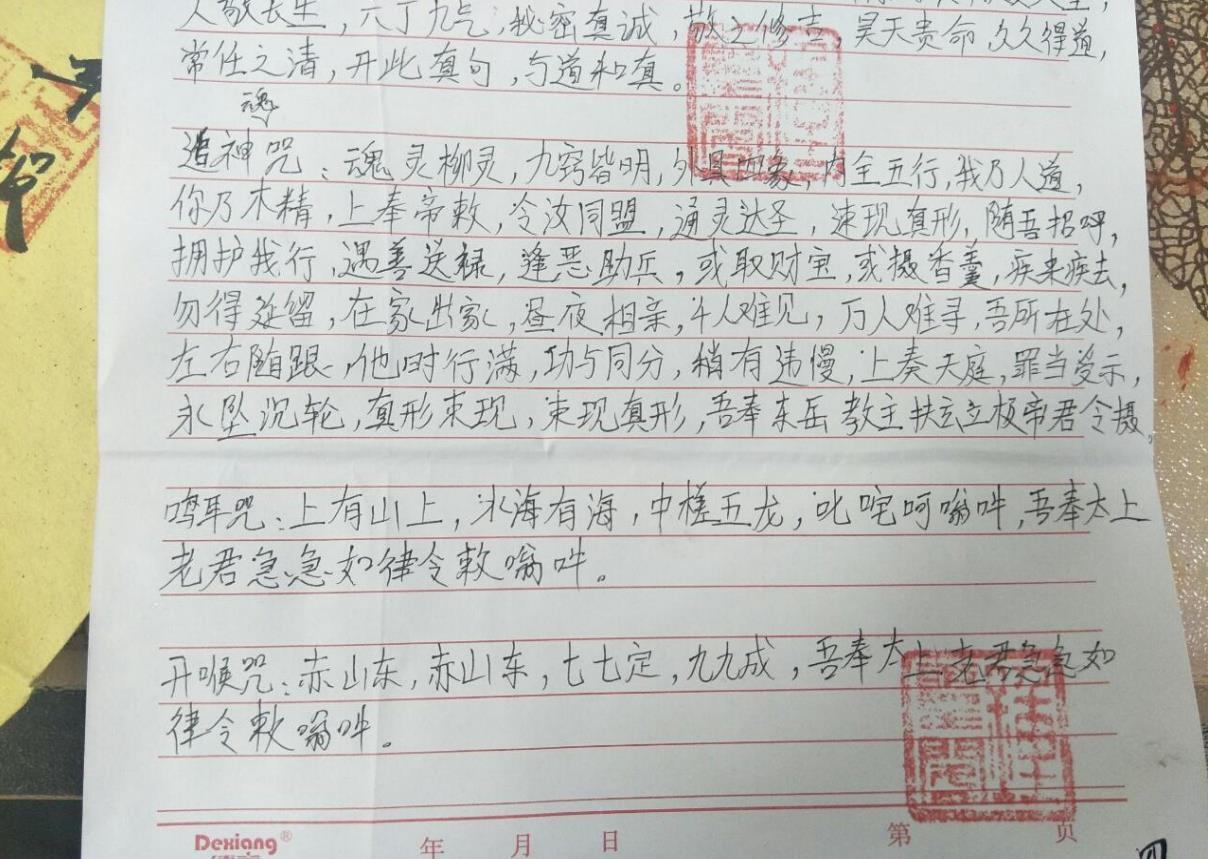 人敬长生，六丁九气，秘密真诚，敬之修吉，昊天贵命，久久得道，
常任之清，开此真句，与道和真。
魂
追神咒：魂灵柳灵，九窍皆明，外具四象，内全五行，我乃人道，
你乃木精，上奉帝敕，令汝同盟，通灵达圣，速现真形，随吾招呼，
拥护我行，遇善送禄，逢恶助兵，或取财宝，或摄香羹，疾来疾去，
勿得延留，在家出家，昼夜相亲，千人难见，万人难寻，吾所在处，
左右随跟，他时行满，功与同分，稍有违慢，上奏天庭，罪当受示，
永坠沉轮，真形束现，束现真形，吾奉东岳教主扶玄立极帝君令摄。
鸣耳咒：上有山上，水海有海，中槎五龙，叱咤呵嗡吽，吾奉太上
老君急急如律令敕嗡吽。
开喉咒：赤山东，赤山东，七七定，九九成，吾奉太上老君急急如
律令敕嗡吽。
Dexiang®
年 月 日 第 页
四